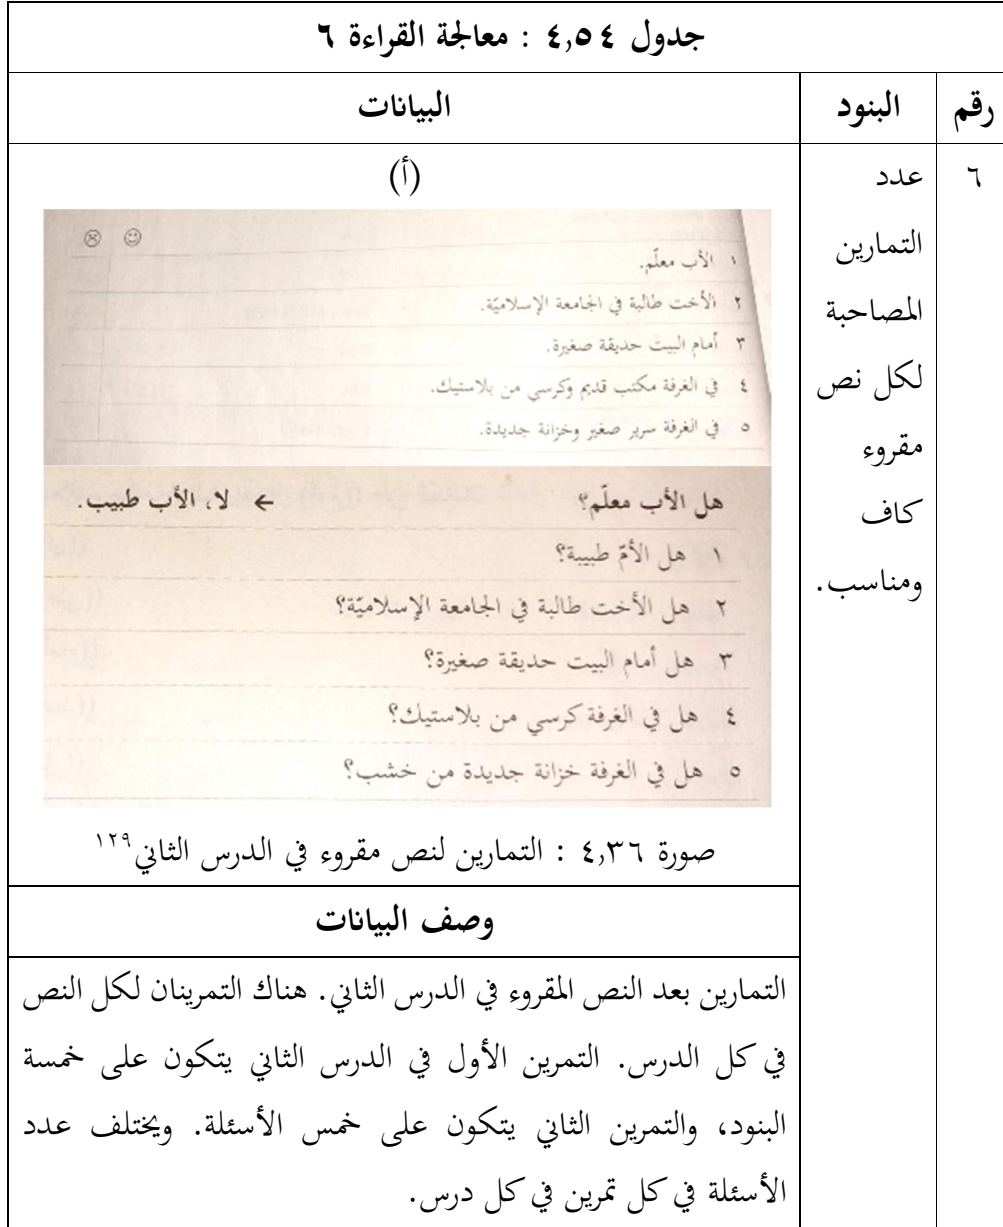 جدول ٤,٥٤ : معالجة القراءة ٦
رقم
البنود
البيانات
٦
عدد
التمارين
المصاحبة
لكل نص
مقروء
كاف
ومناسب.
(أ)
١ الأب معلّم.
٢ الأخت طالبة في الجامعة الإسلاميّة.
٣ أمام البيت حديقة صغيرة.
٤ في الغرفة مكتب قديم وكرسي من بلاستيك.
٥ في الغرفة سرير صغير وخزانة جديدة.
هل الأب معلّم؟ ← لا، الأب طبيب.
١ هل الأمّ طبيبة؟
٢ هل الأخت طالبة في الجامعة الإسلاميّة؟
٣ هل أمام البيت حديقة صغيرة؟
٤ هل في الغرفة كرسي من بلاستيك؟
٥ هل في الغرفة خزانة جديدة من خشب؟
صورة ٤,٣٦ : التمارين لنص مقروء في الدرس الثاني١٢٩
وصف البيانات
التمارين بعد النص المقروء في الدرس الثاني. هناك التمرينان لكل النص
في كل الدرس. التمرين الأول في الدرس الثاني يتكون على خمسة
البنود، والتمرين الثاني يتكون على خمس الأسئلة. ويختلف عدد
الأسئلة في كل تمرين في كل درس.